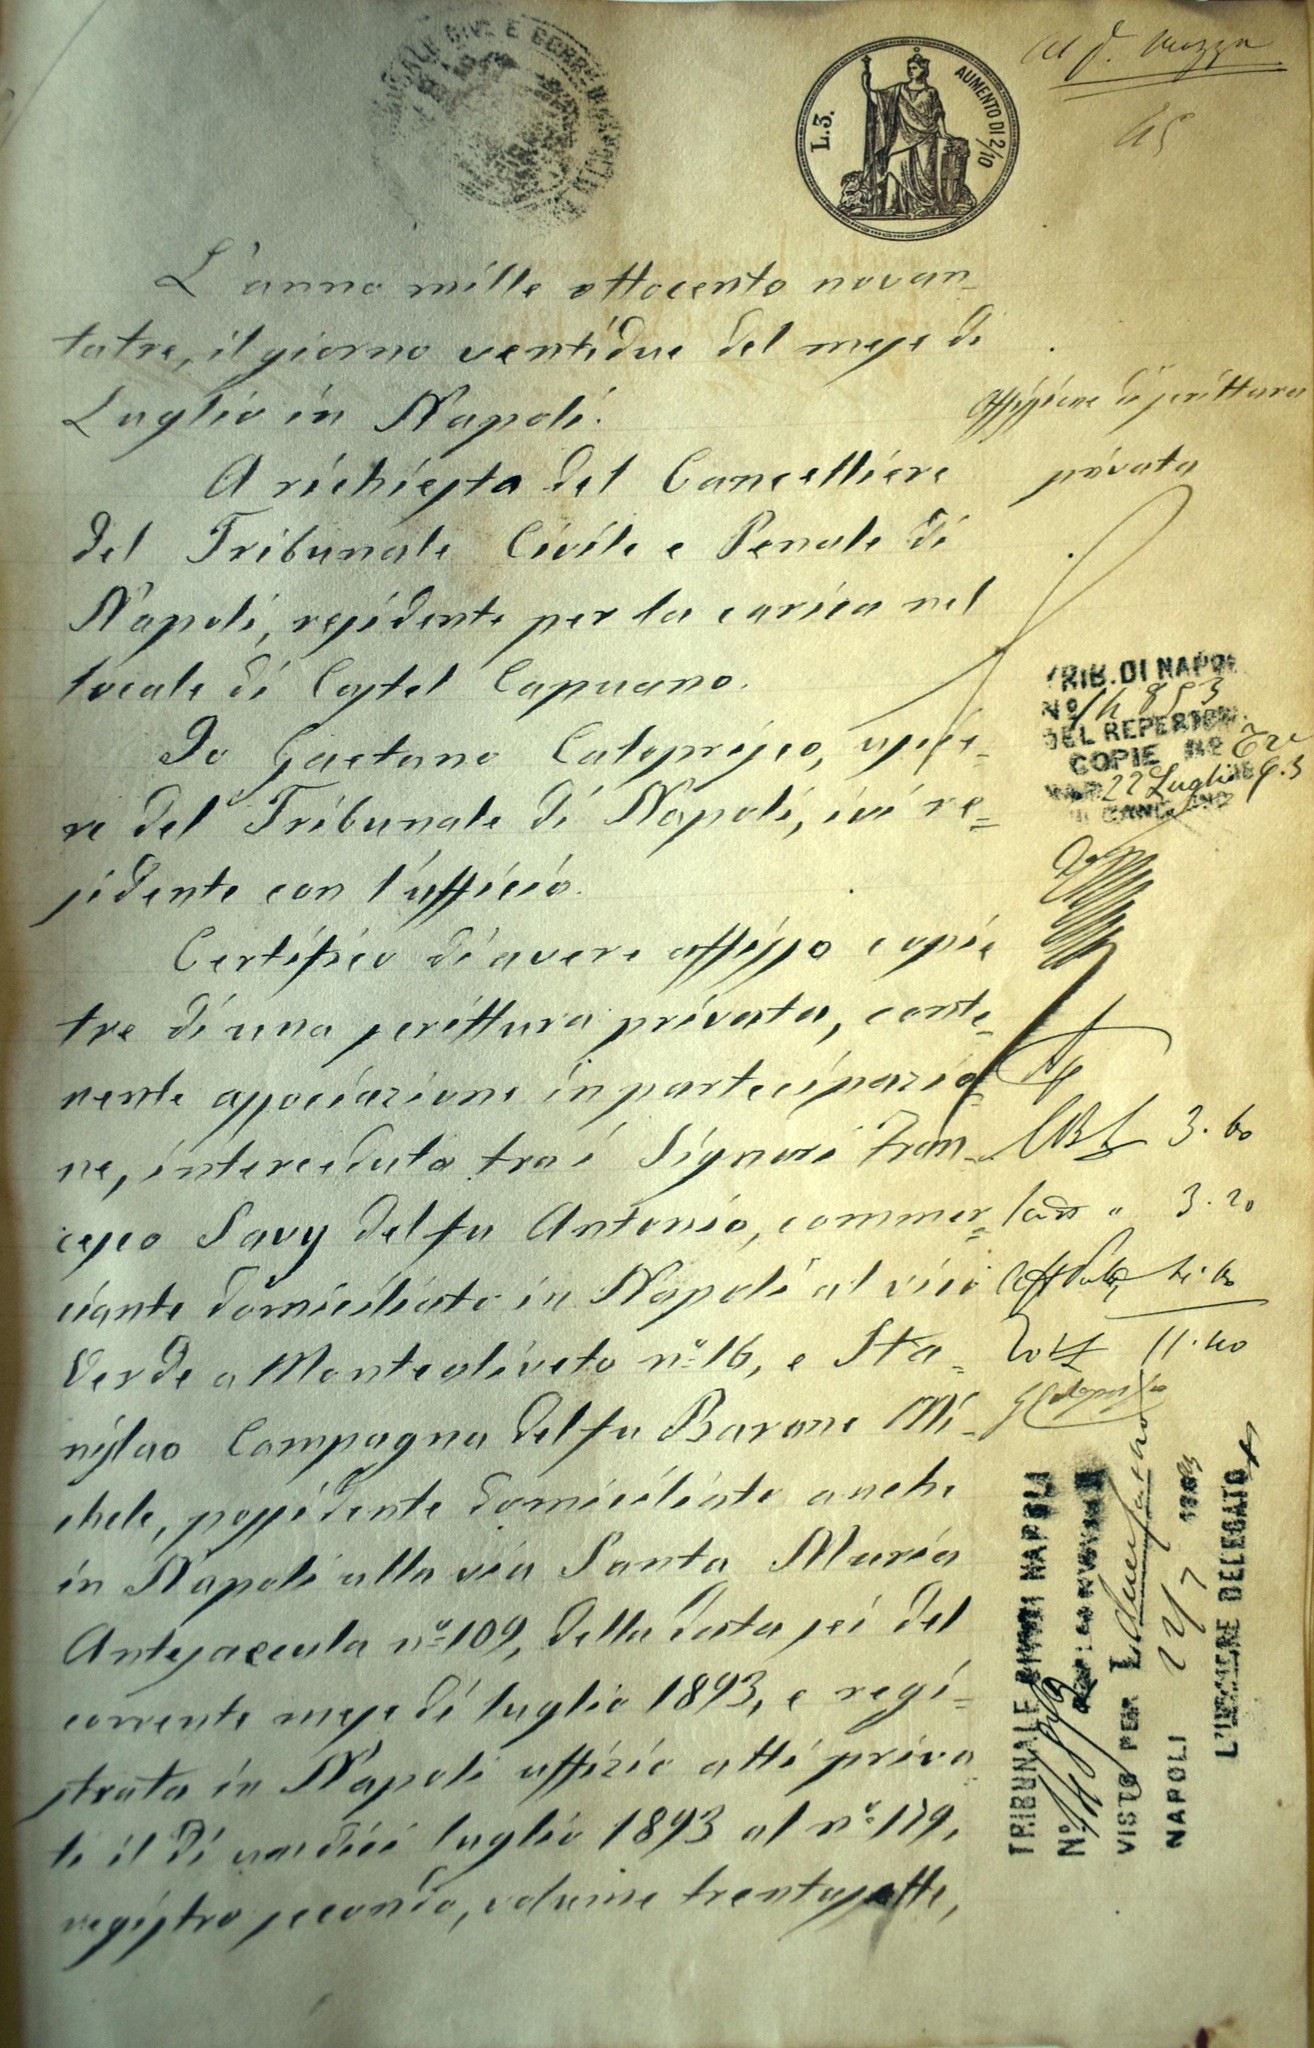 L. 3.
AUMENTO DI 2/10
45
L'anno mille ottocento novan-
tatre, il giorno ventidue del mese di
Luglio in Napoli.
Affissione di scrittura
privata
A richiesta del Cancelliere
del Tribunale Civile e Penale di
Napoli, residente per la carica nel
locale di Castel Capuano.
Io Gaetano Caloprisco, uscie=
re del Tribunale di Napoli, ivi re=
sidente con l'ufficio.
Certifico di avere affisso copie
tre di una scrittura privata, conte=
nente associazione in partecipazio=
ne, interceduta tra i Signori Fran=
cesco Savy del fu Antonio, commer=
ciante domiciliato in Napoli al vico
Verde a Monteoliveto nº 16, e Sta=
nislao Compagna del fu Barone Mi=
chele, possidente domiciliato anche
in Napoli alla via Santa Maria
Antesaecula nº 109, della data sei del
corrente mese di luglio 1893, e regi=
strata in Napoli uffizio atti priva
ti il dì undici luglio 1893 al nº 179,
registro secondo, volume trentasette,
TRIB. DI NAPOLI
Nº 14853
DEL REPERTORIO
COPIE Nº Tre
22 Luglio 93
3.60
3.20
4.60
11.40
TRIBUNALE CIVILE NAPOLI
Nº
VISTO PER L
NAPOLI 22/7 1893
L'USCIERE DELEGATO